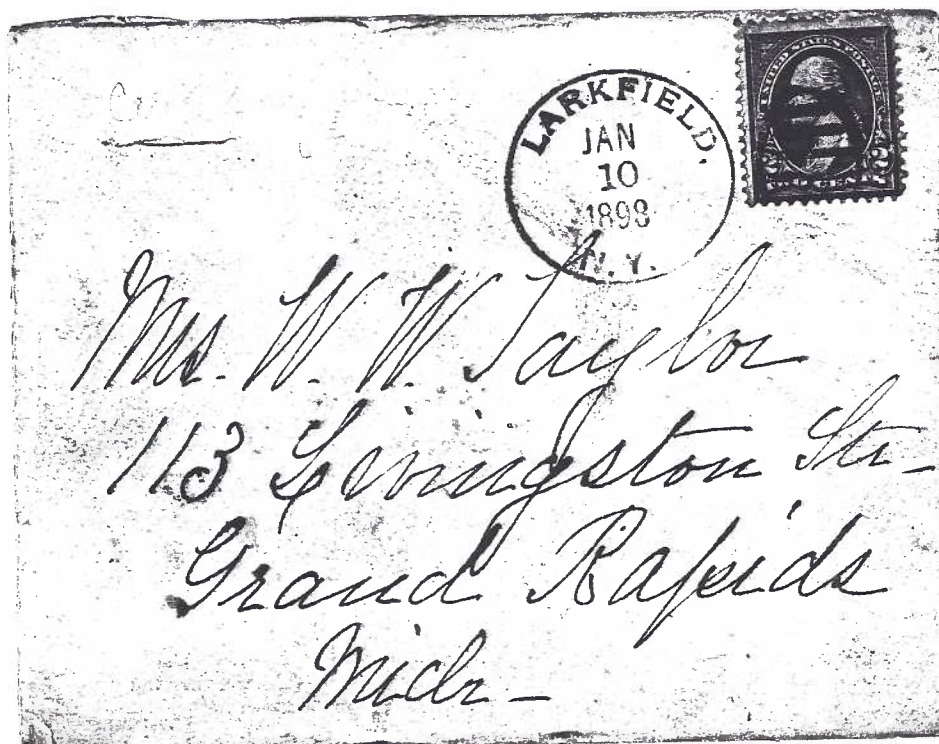 LARKFIELD.
JAN
10
1898
N. Y.
UNITED STATES POSTAGE
2 2
TWO CENTS
Mrs. W. W. Taylor
113 Livingston Str-
Grand Rapids
Mich-